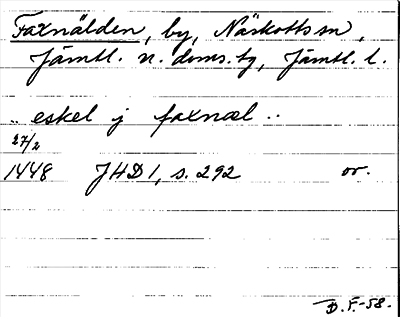 Faxnälden, by, Näskotts sn,
Jämtl. n. doms.bg, Jämtl. l.
.. eskel j faxnæl ..
27/2
1448 JHD 1, s. 292 or.
D. F. -58.